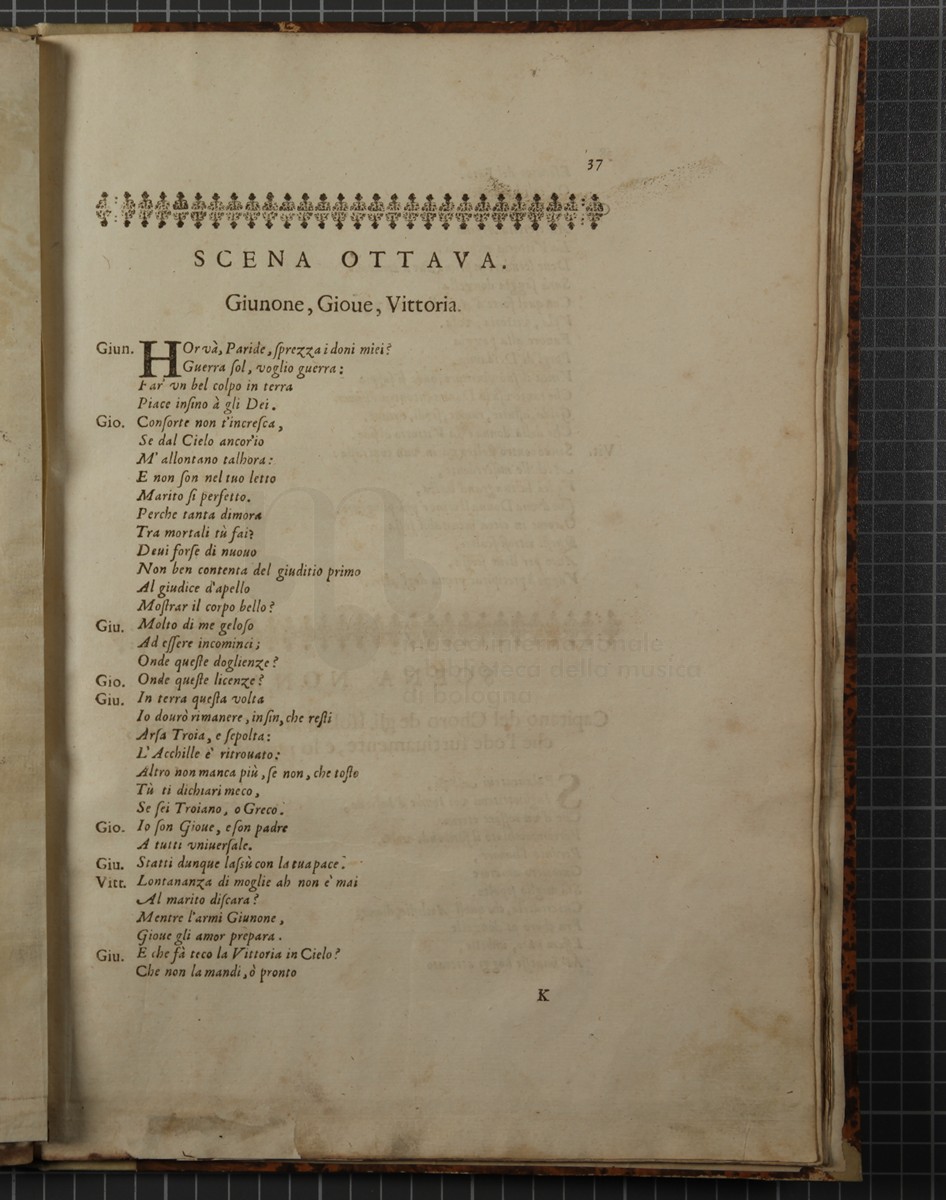 37
SCENA OTTAVA.
Giunone, Gioue, Vittoria.
Giun. HOr và, Paride, ſprezza i doni miei?
Guerra ſol, voglio guerra:
Far vn bel colpo in terra
Piace inſino à gli Dei.
Gio. Conſorte non t'increſca,
Se dal Cielo ancor'io
M'allontano talhora:
E non ſon nel tuo letto
Marito ſi perfetto.
Perche tanta dimora
Tra mortali tù fai?
Deui forſe di nuouo
Non ben contenta del giuditio primo
Al giudice d'apello
Moſtrar il corpo bello?
Giu. Molto di me geloſo
Ad eſſere incominci;
Onde queſte doglienze?
Gio. Onde queſte licenze?
Giu. In terra queſta volta
Io dourò rimanere, inſin, che reſti
Arſa Troia, e ſepolta:
L'Acchille è ritrouato:
Altro non manca più, ſe non, che toſto
Tù ti dichiari meco,
Se ſei Troiano, o Greco.
Gio. Io ſon Gioue, e ſon padre
A tutti vniuerſale.
Giu. Statti dunque laſsù con la tua pace.
Vitt. Lontananza di moglie ah non è mai
Al marito diſcara?
Mentre l'armi Giunone,
Gioue gli amor prepara.
Giu. E che fà teco la Vittoria in Cielo?
Che non la mandi, ò pronto
K
museo internazionale
e biblioteca della musica
di bologna